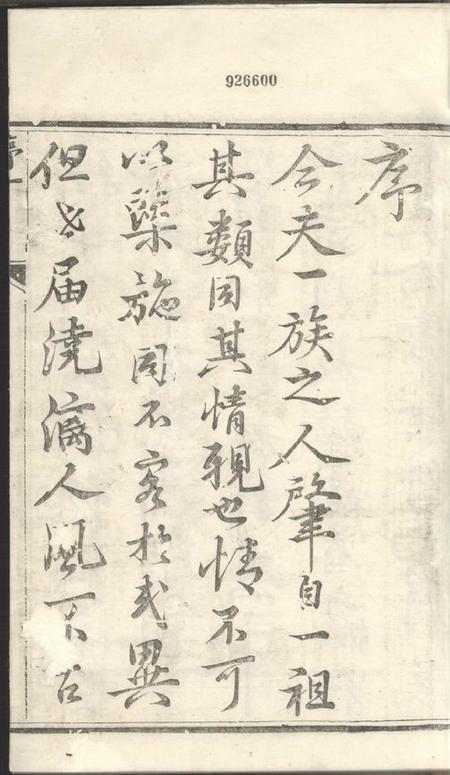 926600
序
今夫一族之人肇自一祖
其類同其情親也情不可
以槩施固不容於或異
但世届澆漓人風不古